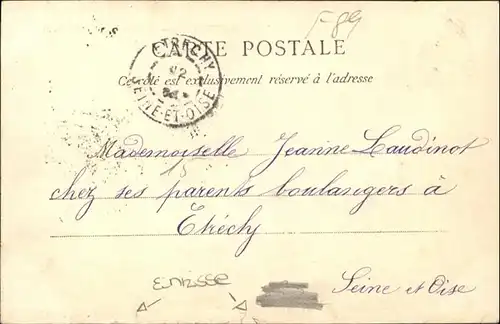 F 89
CARTE POSTALE
ETRECHY
SEINE-ET-OISE
Ce côté est exclusivement réservé à l'adresse
Mademoiselle Jeanne Laudinot
chez ses parents boulangers à
Etréchy
Seine et Oise